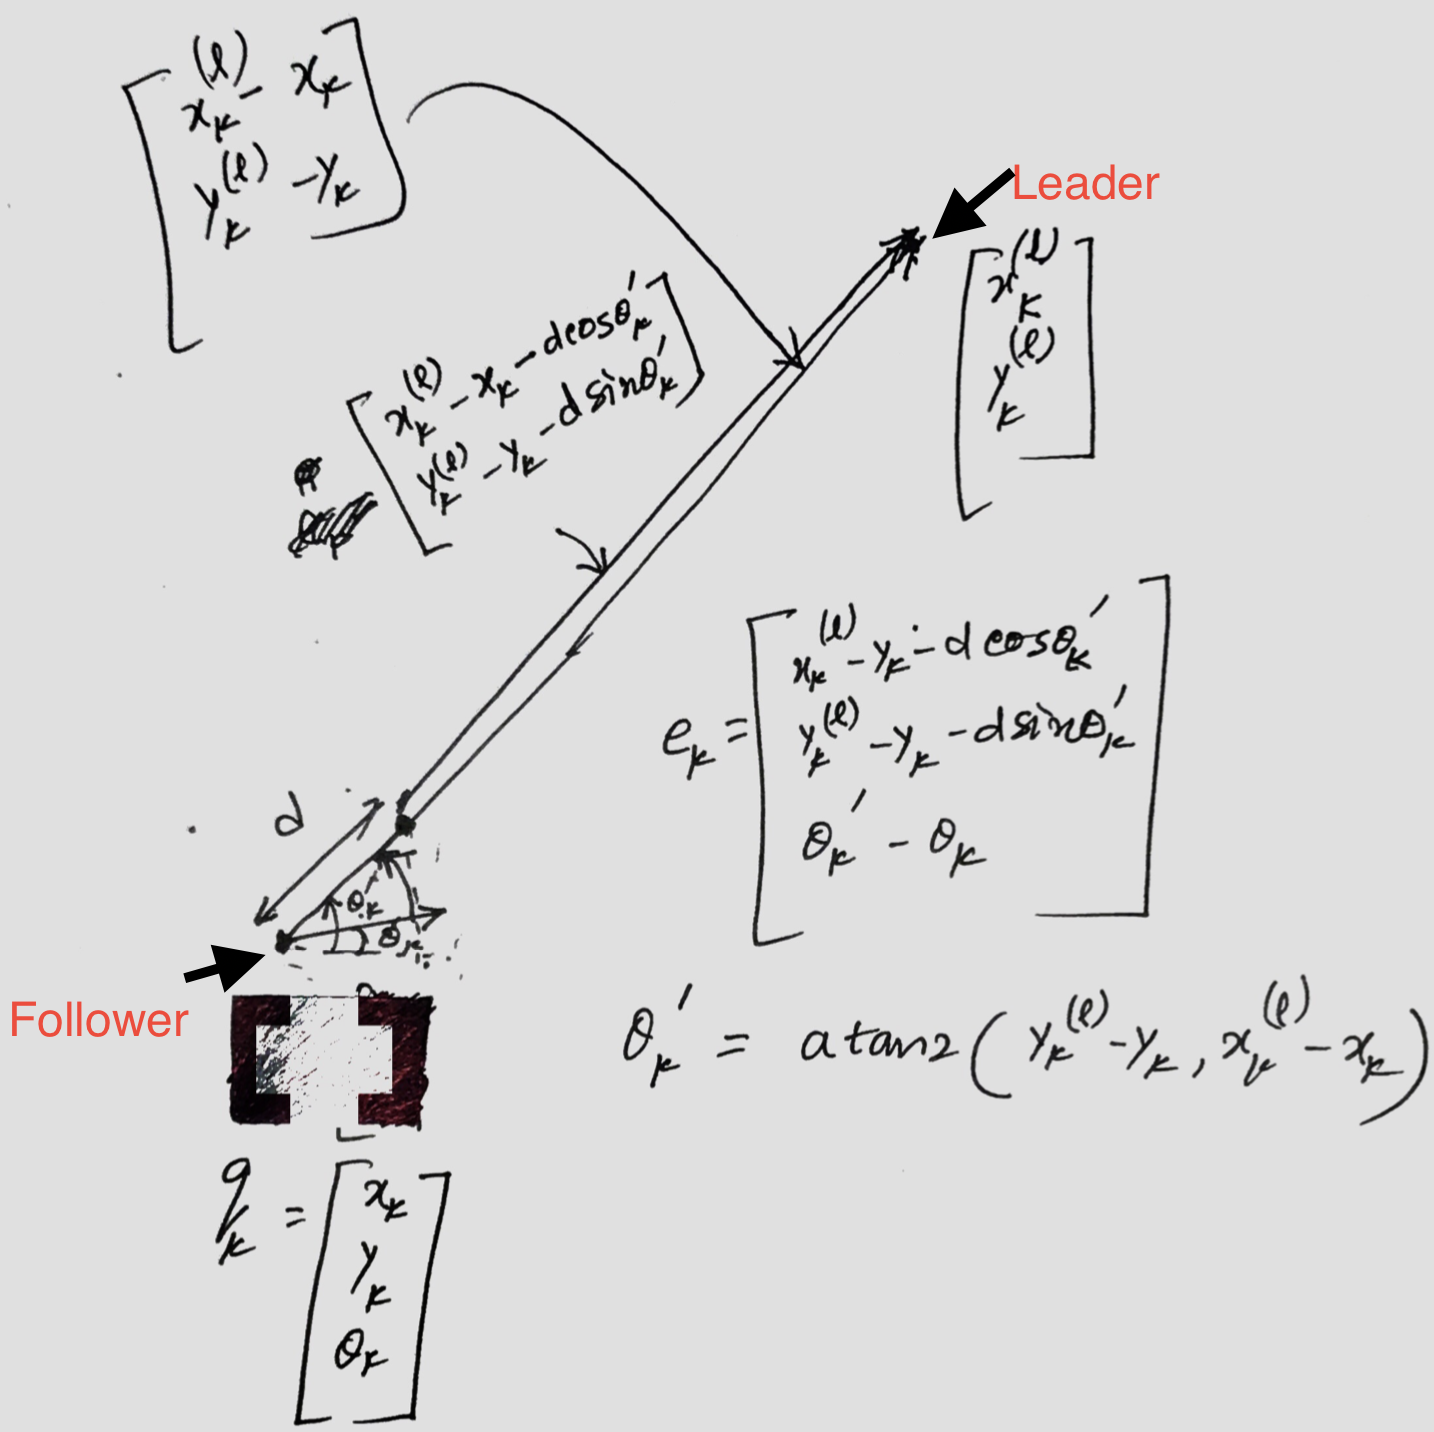 x_k^(l) - x_k
y_k^(l) - y_k
Leader
x_k^(l)
y_k^(l)
x_k^(l) - x_k - d cosθ_k'
y_k^(l) - y_k - d sinθ_k'
e_k = [ x_k^(l) - y_k - d cosθ_k'
y_k^(l) - y_k - d sinθ_k'
θ_k' - θ_k ]
d
θ_k'
θ_k
Follower
θ_k' = atan2( y_k^(l) - y_k, x_k^(l) - x_k )
q_k = [ x_k
y_k
θ_k ]